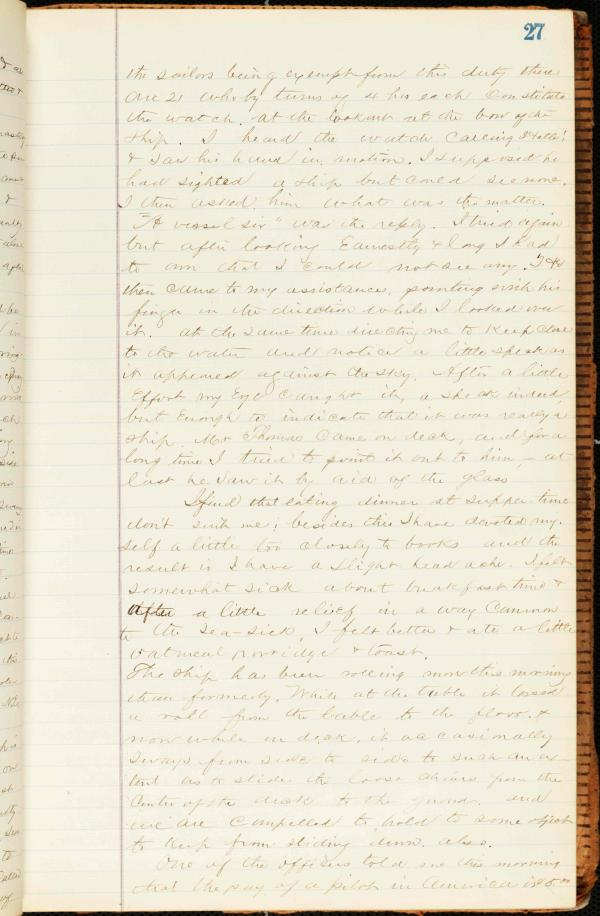 27
the sailors being exempt from this duty there
are 21 who by turns of 4 hrs each Constitute
the watch. At the lookout at the bow of the
ship. I heard the watch calling
& saw his hand in motion. I supposed he
had sighted a ship but could see none.
I then asked him what was the matter.
"A vessel sir" was the reply. I tried again
but after looking Earnestly & long I had
to own that I could not see any.
then came to my assistance, pointing with his
finger in the direction while I looked over
it. at the same time directing me to Keep close
to the water and notice a little speck as
it appeared against the sky. After a little
Effort my Eye Caught it, a speck indeed
but Enough to indicate that it was really a
ship. Mr Thomas Came on deck, and for a
long time I tried to point it out to him, – at
last he saw it by aid of the glass
I find that eating dinner at supper time
don't suit me; besides this I have devoted my-
self a little too closely to books and the
result is I have a slight head ache. I felt
somewhat sick about breakfast time &
after a little relief in a way Common
to the sea-sick, I felt better & ate a little
oatmeal porridge & toast.
The ship has been rolling more this morning
than formerly. While at the table it tossed
a roll from the table to the floor. &
now while on deck, it occasionally
sways from side to side to such an ex-
tent as to slide the loose chairs from the
Center of the deck to the and
we are Compelled to hold to some object
to Keep from sliding down also.
One of the officers told me this morning
that the pay of a pilot in America is